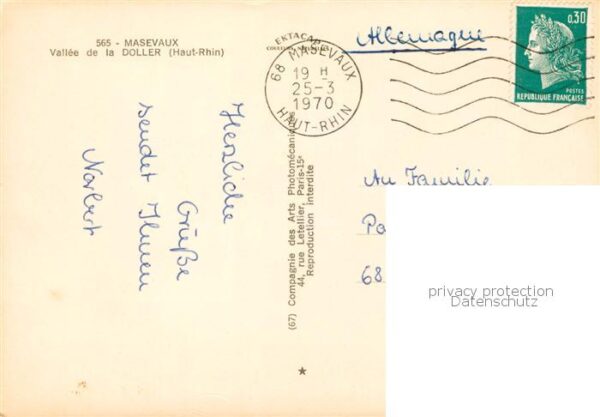 565 - MASEVAUX
Vallée de la DOLLER (Haut-Rhin)
Herzliche
Grüße
sendet Ihnen
Norbert
EKTACAP
(67) Compagnie des Arts Photomécaniques
44, rue Letellier, Paris-15e
Reproduction interdite
68 MASEVAUX
19 H
25-3
1970
HAUT-RHIN
Allemagne
0,30
POSTES
REPUBLIQUE FRANÇAISE
An Familie
Pa
68
privacy protection
Datenschutz